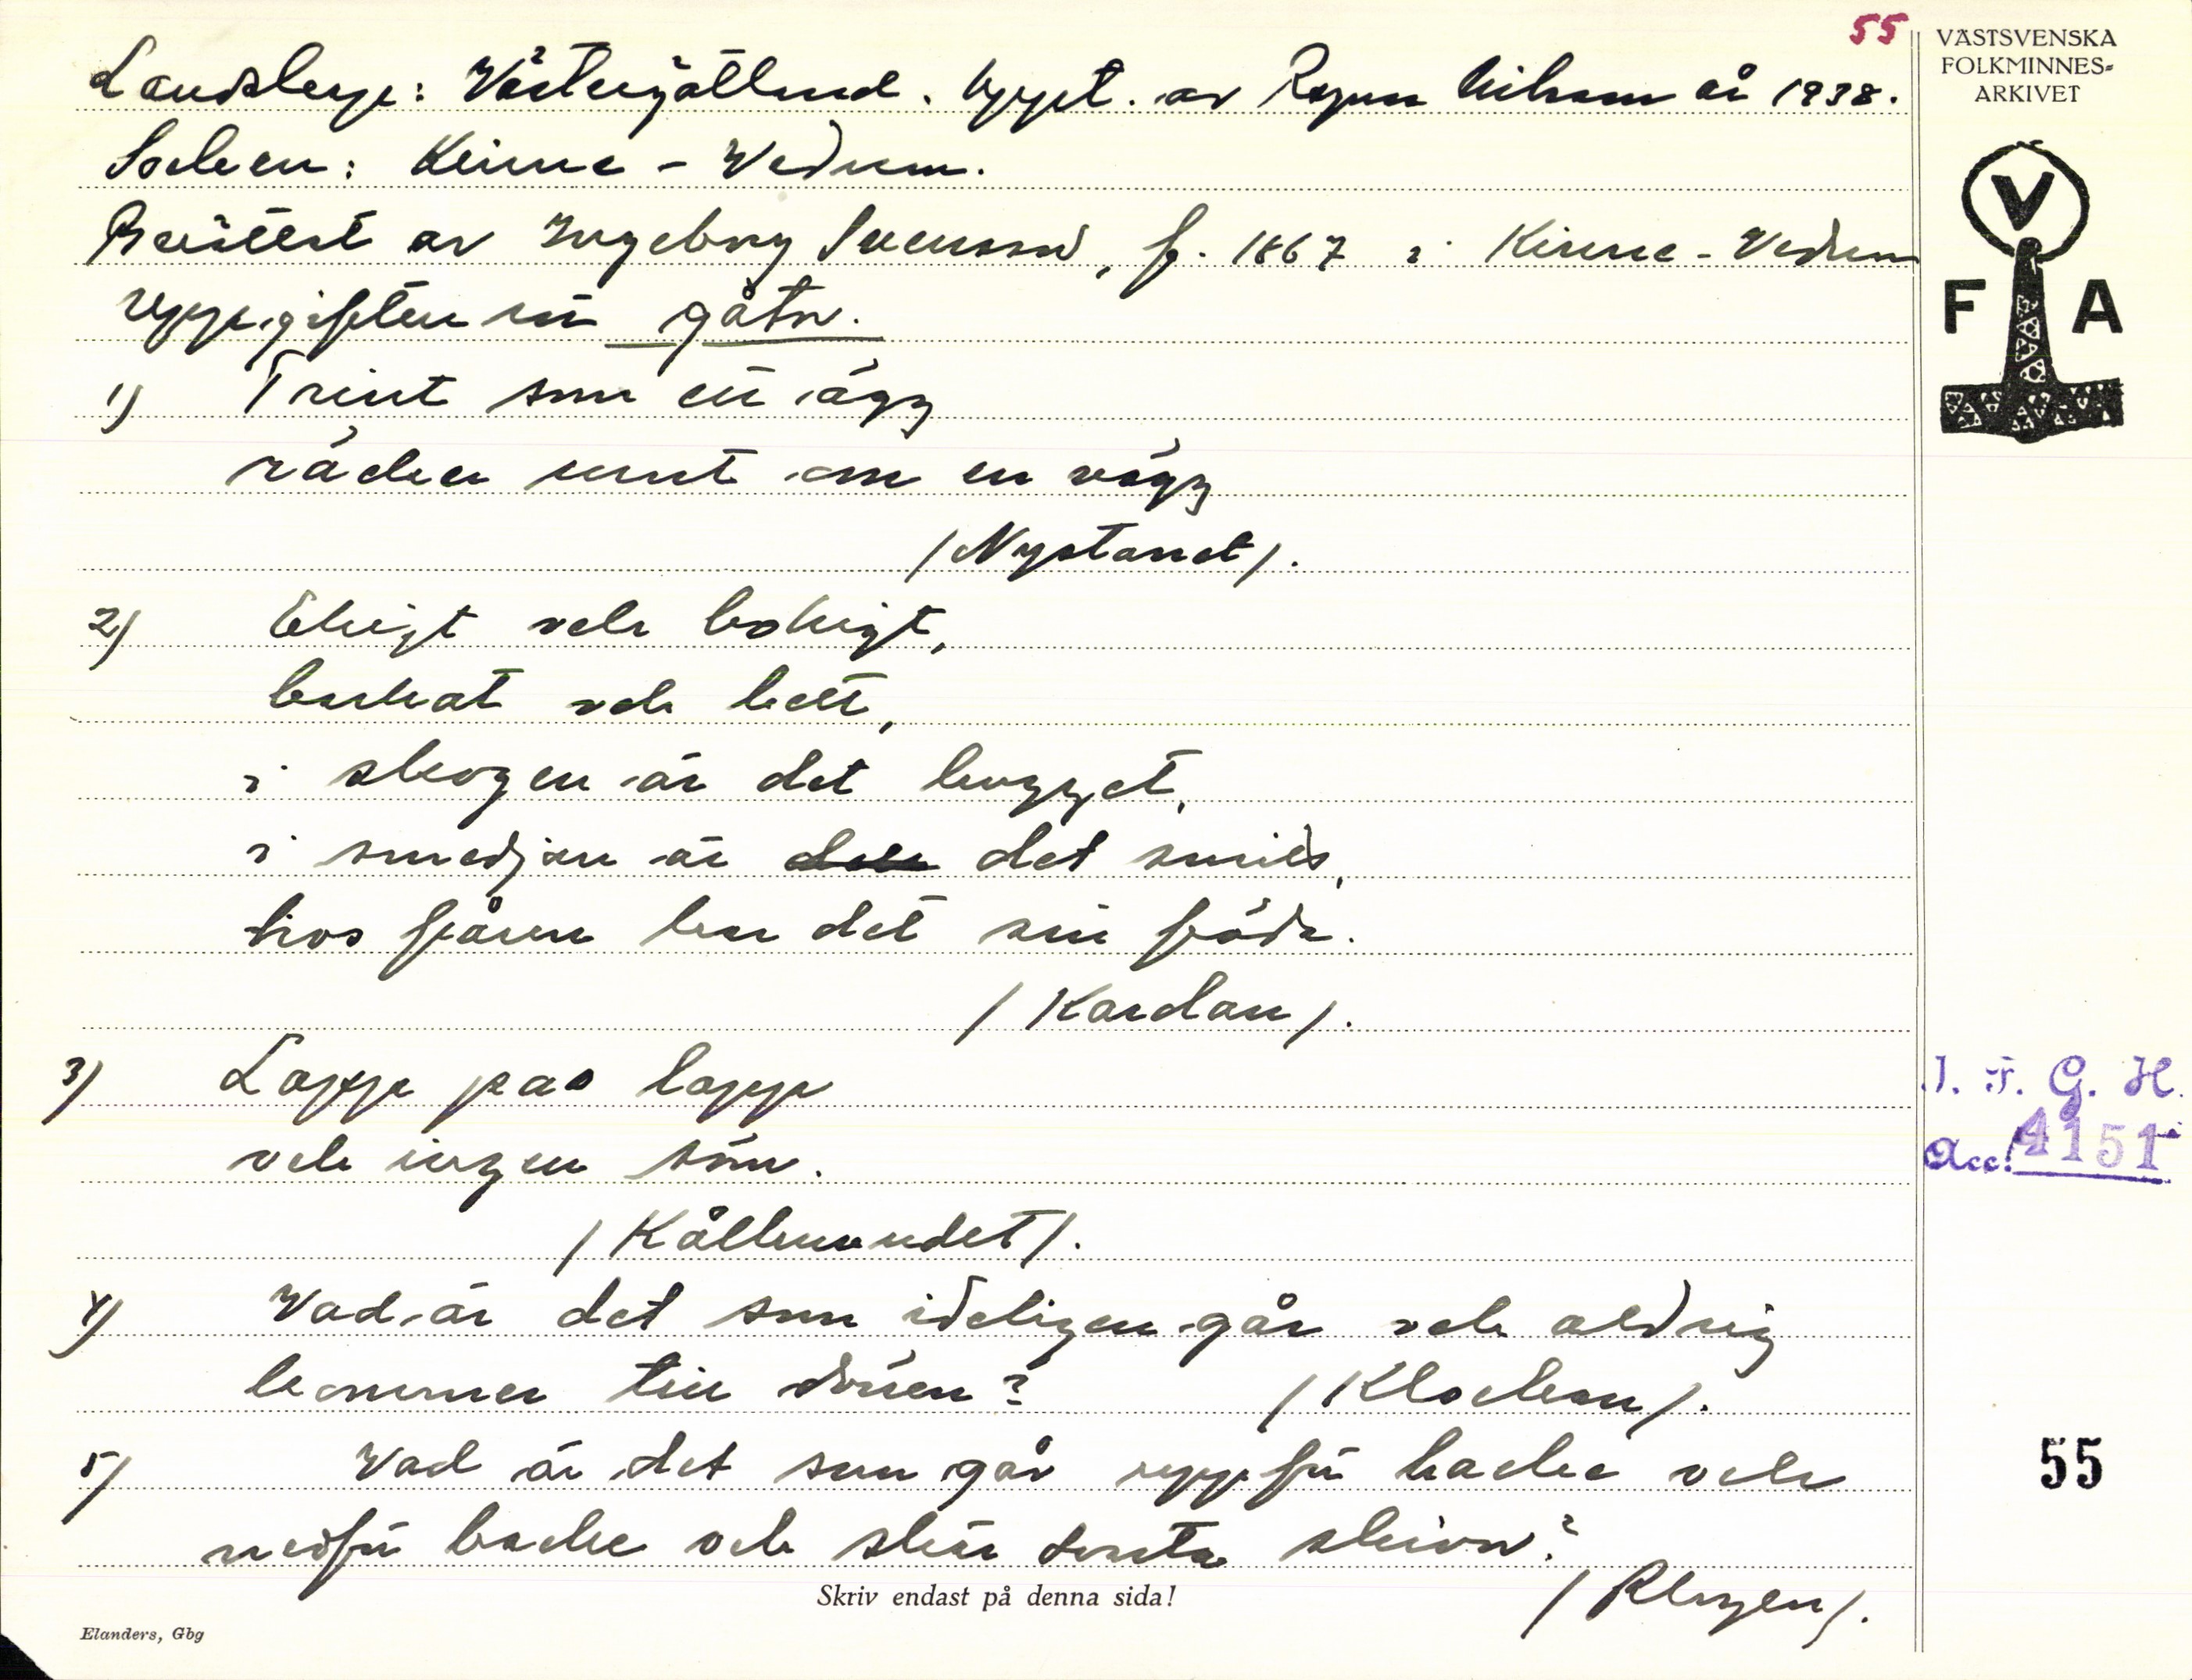 55
VÄSTSVENSKA
FOLKMINNES-
ARKIVET
V
F A
Landskap: Västergötland. Uppt. av Ragnar Nilsson år 1938.
Socken: Kinne-Vedum.
Berättat av Ingeborg Svensson, f. 1867 i Kinne-Vedum
Uppgiften om gåtor.
1) Trint som ett ägg
räcker runt om en vägg
/Nystanet/.
2) Ekigt och bokigt,
burkat och
i skogen är det hugget,
i smedjan är det smitt,
hos fåren har det sin föda.
/Kardan/.
3) Lapp på lapp
och ingen söm.
/Kålhuvudet/.
4) Vad är det som ideligen går och aldrig
kommer till dörren? /Klockan/.
5) Vad är det som går uppför backe och
nedför backe och
/Plogen/.
J. F. G. H.
Acc: 4151
55
Skriv endast på denna sida!
Elanders, Gbg